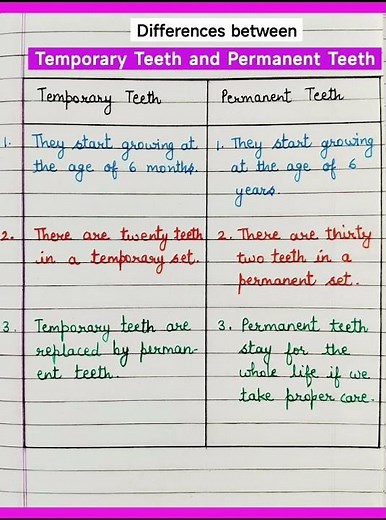 Differences between
Temporary Teeth and Permanent Teeth
Temporary Teeth
Permanent Teeth
1. They start growing at
the age of 6 months.
1. They start growing
at the age of 6
years.
2. There are twenty teeth
in a temporary set.
2. There are thirty
two teeth in a
permanent set.
3. Temporary teeth are
replaced by perman-
ent teeth.
3. Permanent teeth
stay for the
whole life if we
take proper care.